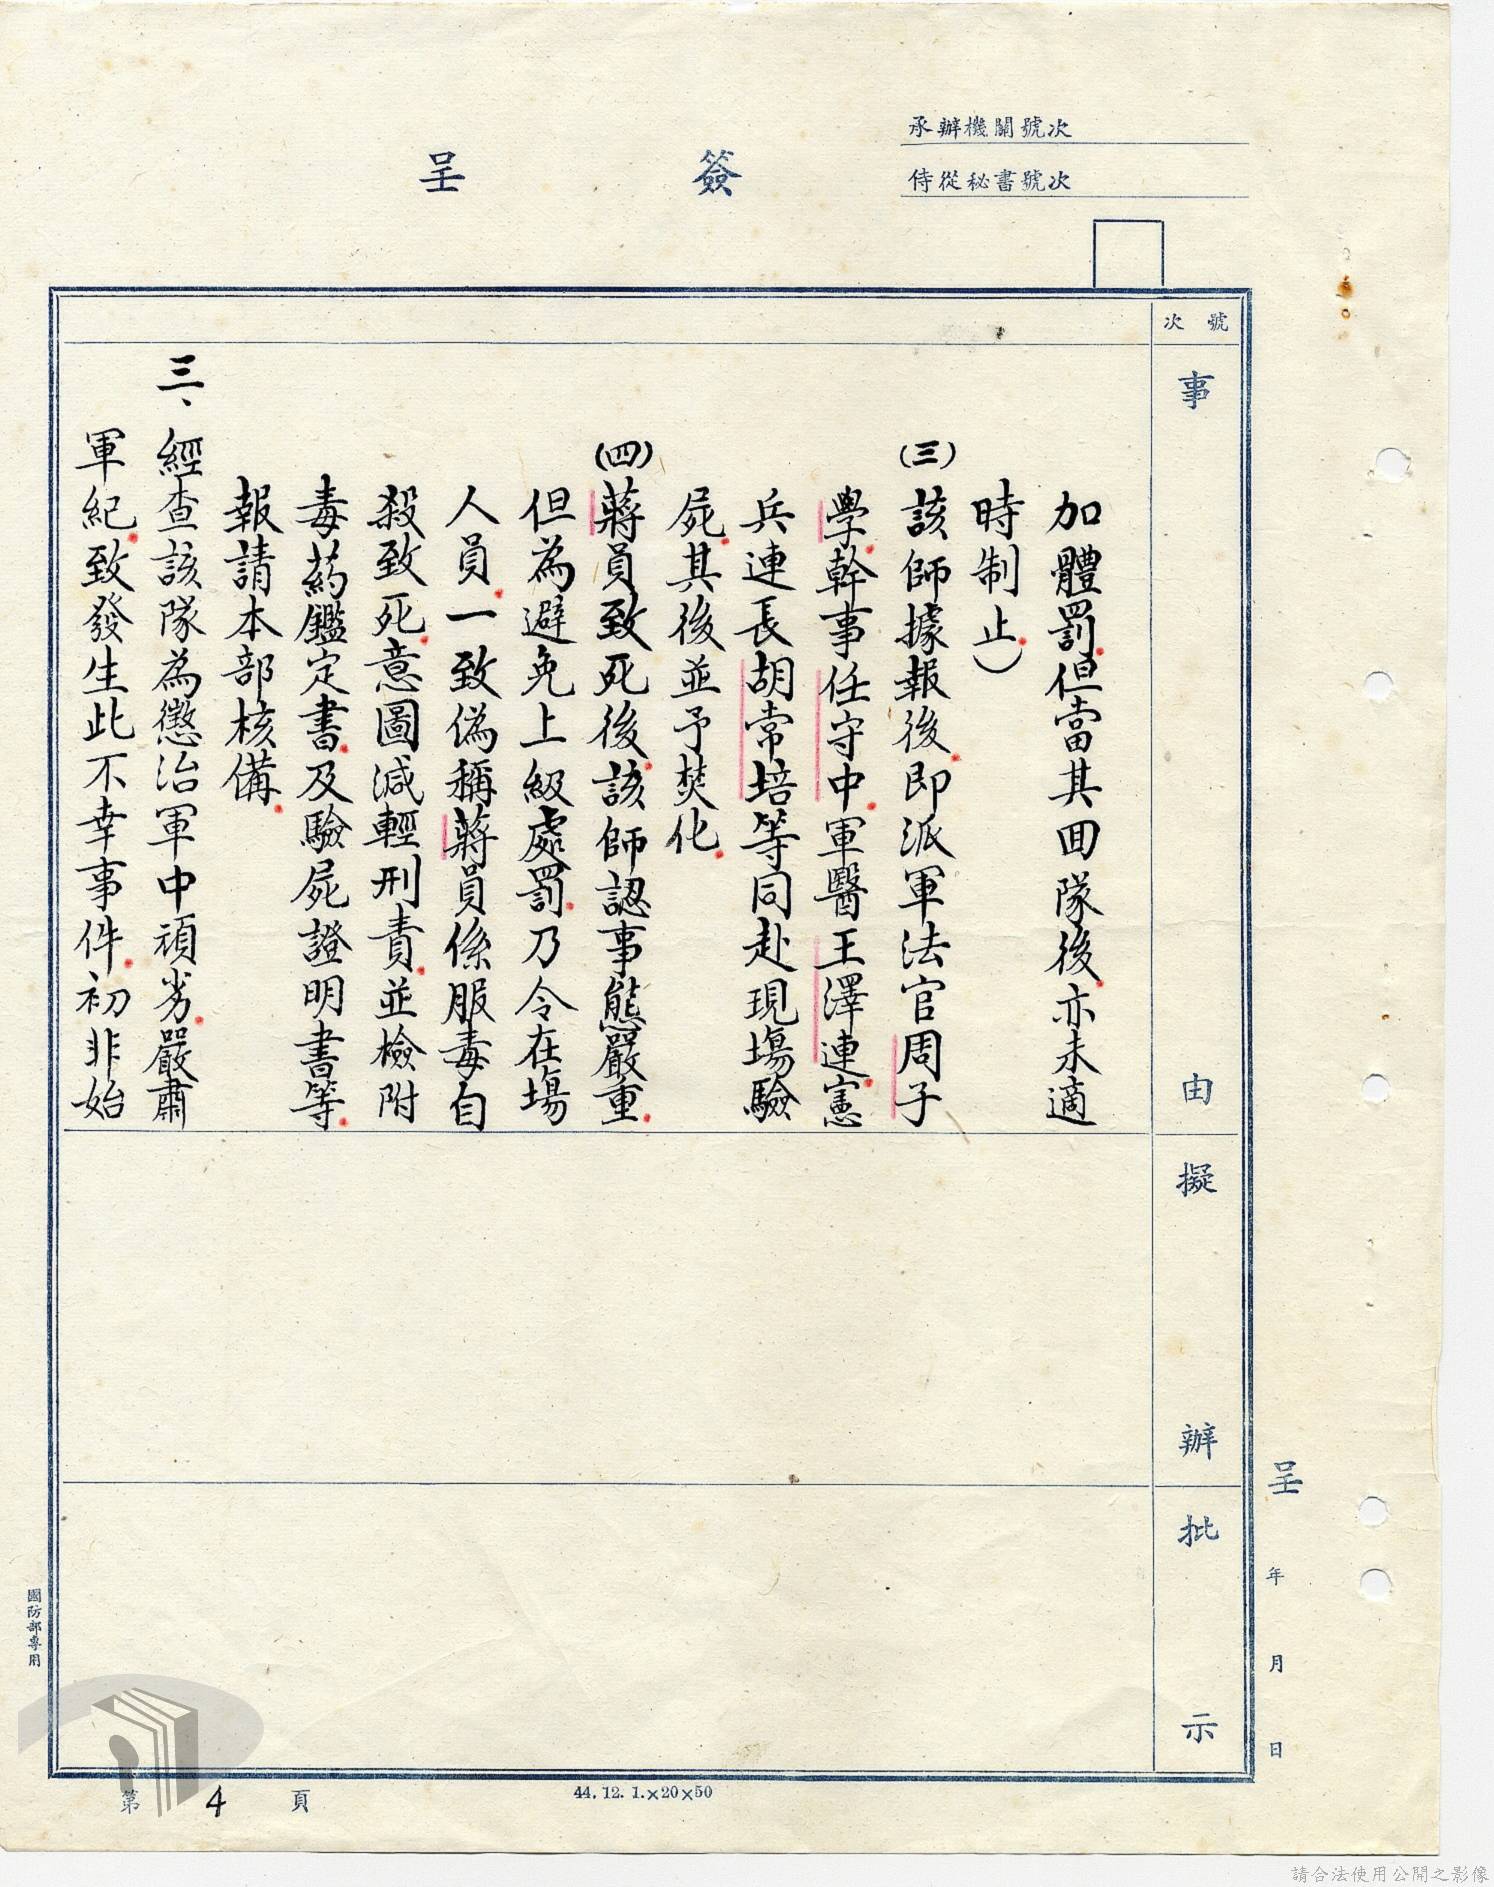 承辦機關號次
侍從秘書號次
簽呈
號次
事由
擬辦
批示
加體罰但當其回隊後亦未適
時制止）
(三)該師據報後即派軍法官周子
學幹事任守中軍醫王澤連憲
兵連長胡常培等同赴現場驗
屍其後並予焚化
(四)蔣員致死後該師認事態嚴重
但為避免上級處罰乃令在場
人員一致偽稱蔣員係服毒自
殺致死意圖減輕刑責並檢附
毒药鑑定書及驗屍證明書等
報請本部核備
三、經查該隊為懲治軍中頑劣嚴肅
軍紀致發生此不幸事件初非始
呈 年 月 日
國防部專用
第 4 頁
44.12.1.×20×50
請合法使用公開之影像